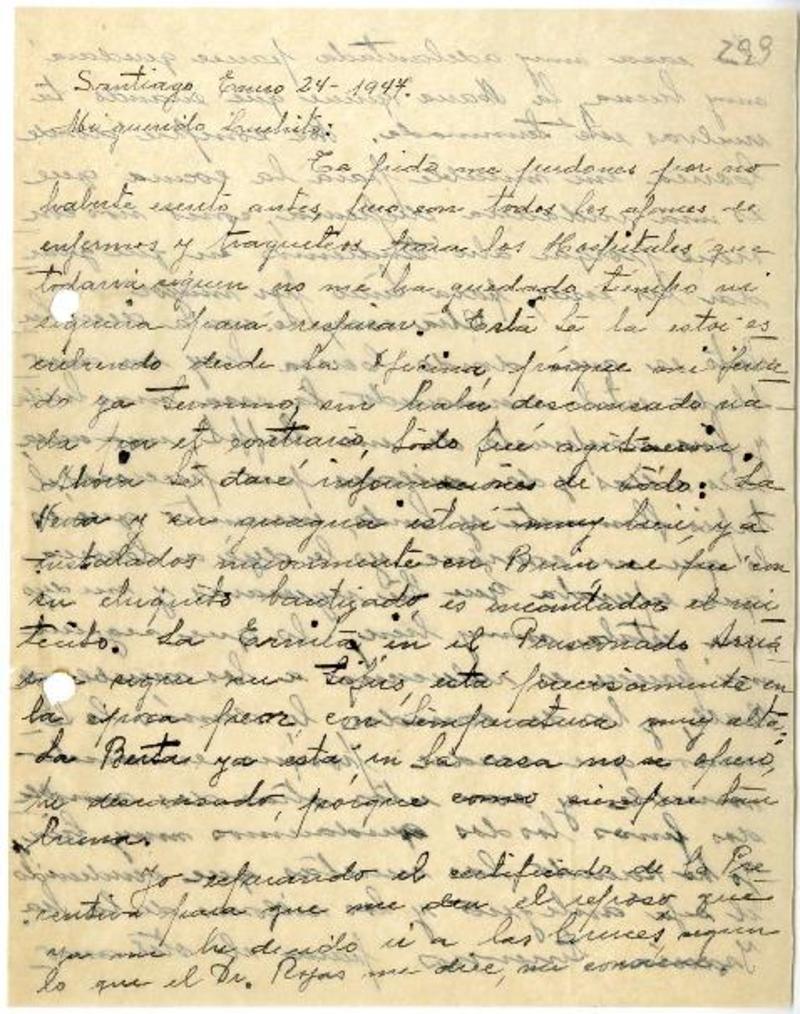 299
Santiago, Enero 24 - 1947.
Mi querido Luchito:
Te pido me perdones por no
haberte escrito antes, pero con todos los afanes de
enfermos y traqueteos para los Hospitales que
todavia siguen no me ha quedado tiempo ni
siquiera para respirar. Esta te la estoi es
cribiendo desde la Oficina, porque mi feria
do ya termino, sin haber descansado na
da por el contrario, todo fué agitacion.
Ahora te daré informaciones de todo: La
Nena y su guagua están muy bien, ya
instalados nuevamente en Buin, se fue con
su chiquito bautizado, es encantador el ni
tecito. La Ernita en el Pensionado Arria
ran sigue su Tifus, está precisamente en
la época peor, con temperatura muy alta,
La Berta ya está en la casa no se operó,
he descansado, porque como siempre tan
buena.
Yo esperando el certificado de La Pre
ventiva para que me den el reposo que
ya me he decidido ir a las Cruces, segun
lo que el Dr. Rojas me dice, me conviene.